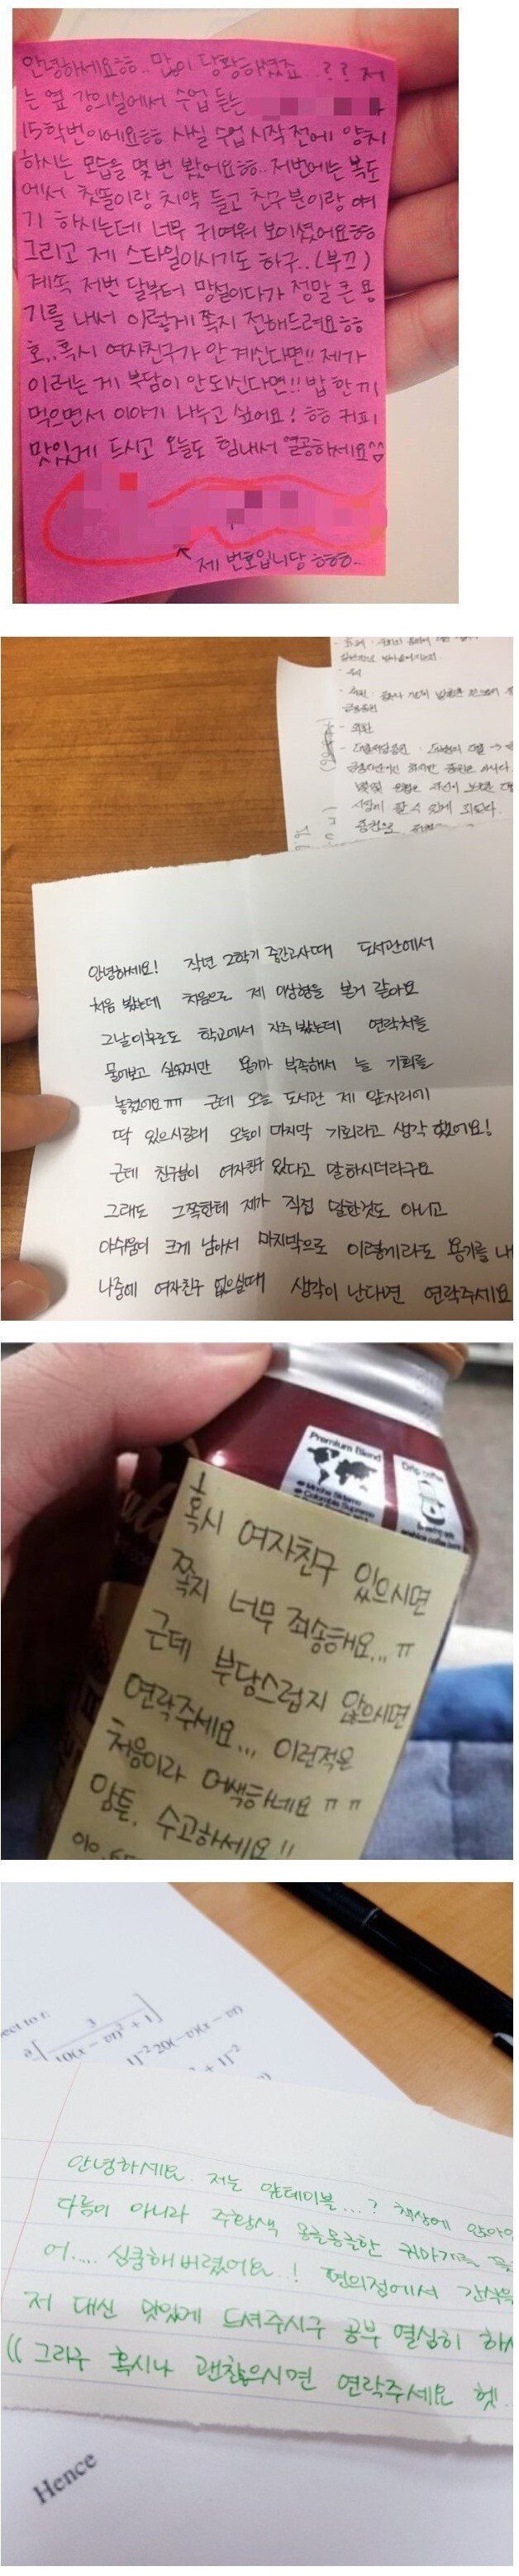 안녕하세요ㅎㅎ.. 많이 당황하셨죠..?? 저
는 옆 강의실에서 수업 듣는
15학번이에요ㅎㅎ 사실 수업 시작 전에 양치
하시는 모습을 몇번 봤어요ㅎㅎ.. 저번에는 복도
에서 칫똘이랑 치약 들고 친구분이랑 얘
기 하시는데 너무 귀여워 보이셨어요ㅎㅎ
그리고 제 스타일이시기도 하구..(부끄)
계속 저번 달부터 망설이다가 정말 큰 용
기를 내서 이렇게 쪽지 전해드려요ㅎㅎ
호,,혹시 여자친구가 안 계신다면!! 제가
이러는 게 부담이 안되신다면!! 밥 한끼
먹으면서 이야기 나누고 싶어요! ㅎㅎ 커피
맛있게 드시고 오늘도 힘내서 열공하세요^^
제 번호입니당 ㅎㅎㅎ..
안녕하세요! 작년 2학기 중간고사때 도서관에서
처음 봤는데 처음으로 제 이상형을 본거 같아요
그날이후로도 학교에서 자주 봤는데 연락처를
물어보고 싶었지만 용기가 부족해서 늘 기회를
놓쳤어요ㅠㅠ 근데 오늘 도서관 제 앞자리에
딱 있으시길래 오늘이 마지막 기회라고 생각했어요!
근데 친구분이 여자친구 있다고 말하시더라구요
그래도 그쪽한테 제가 직접 말한것도 아니고
아쉬움이 크게 남아서 마지막으로 이렇게라도 용기를 내
나중에 여자친구 없으실때 생각이 난다면 연락주세요
Premium Blend
Drip coffee
혹시 여자친구 있으시면
쪽지 너무 죄송해요... ㅠ
근데 부담스럽지 않으시면
연락주세요... 이런적은
처음이라 어색하네요 ㅠㅠ
암튼, 수고하세요!!
010.
안녕하세요. 저는 앞테이블...? 책상에 앉아있
다름이 아니라 주황색 몽글몽글한 귀마개를
어..... 심쿵해버렸어요..! 편의점에서 간식을
저 대신 맛있게 드셔주시구 공부 열심히 하
(( 그리구 혹시나 괜찮으시면 연락주세요 헷.
Hence